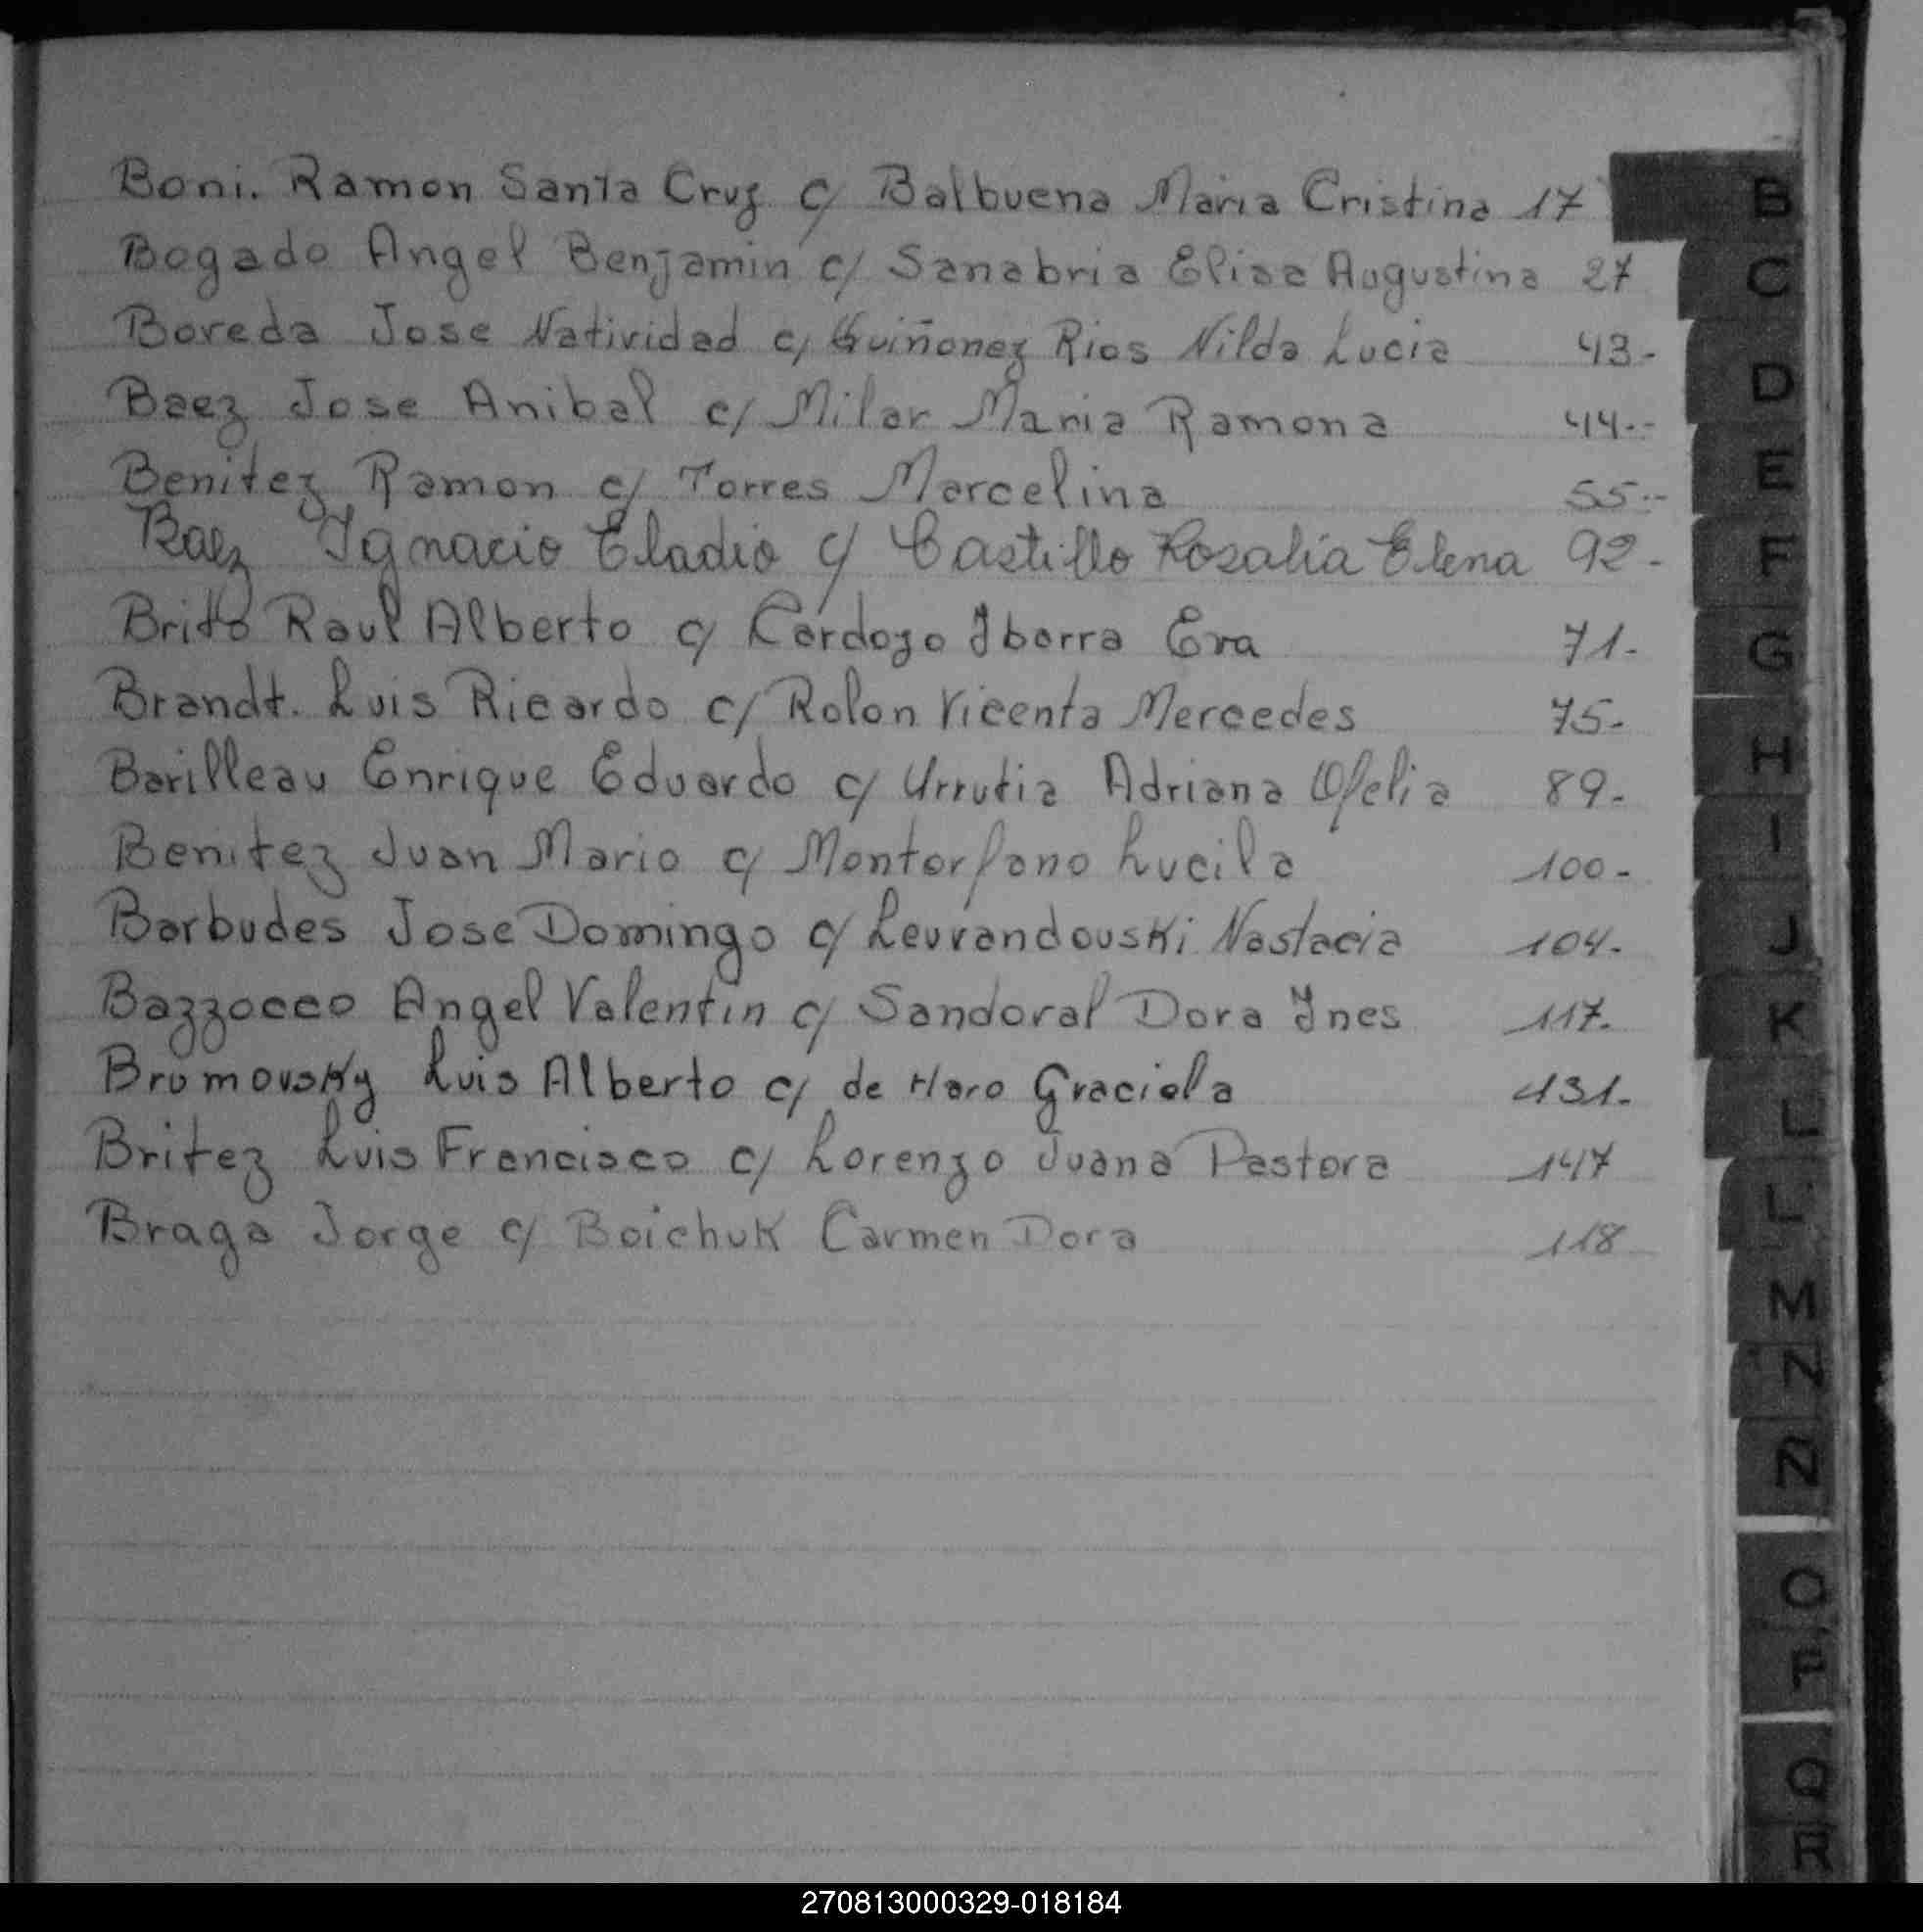 Boni. Ramon Santa Cruz c/ Balbuena Maria Cristina 17
Bogado Angel Benjamin c/ Sanabria Elisa Augustina 27
Boveda Jose Natividad c/ Guiñonez Rios Nilda Lucia 43-
Baez Jose Anibal c/ Milar Maria Ramona 44--
Benitez Ramon c/ Torres Marcelina 55--
Baez Ignacio Eladio c/ Castillo Rosalia Elena 92-
Brito Raul Alberto c/ Cardozo Ibarra Eva 71-
Brandt. Luis Ricardo c/ Rolon Vicenta Mercedes 75-
Barilleau Enrique Eduardo c/ Urrutia Adriana Ofelia 89-
Benitez Juan Mario c/ Montorfano Lucila 100-
Barbudes Jose Domingo c/ Levrandouski Nastacia 104-
Bazzocco Angel Valentin c/ Sandoval Dora Ines 117.
Bromovsky Luis Alberto c/ de Haro Graciela 131-
Britez Luis Francisco c/ Lorenzo Juana Pastora 147
Braga Jorge c/ Boichuk Carmen Dora 118
B
C
D
E
F
G
H
I
J
K
L
L
M
N
N
O
P
Q
R
270813000329-018184